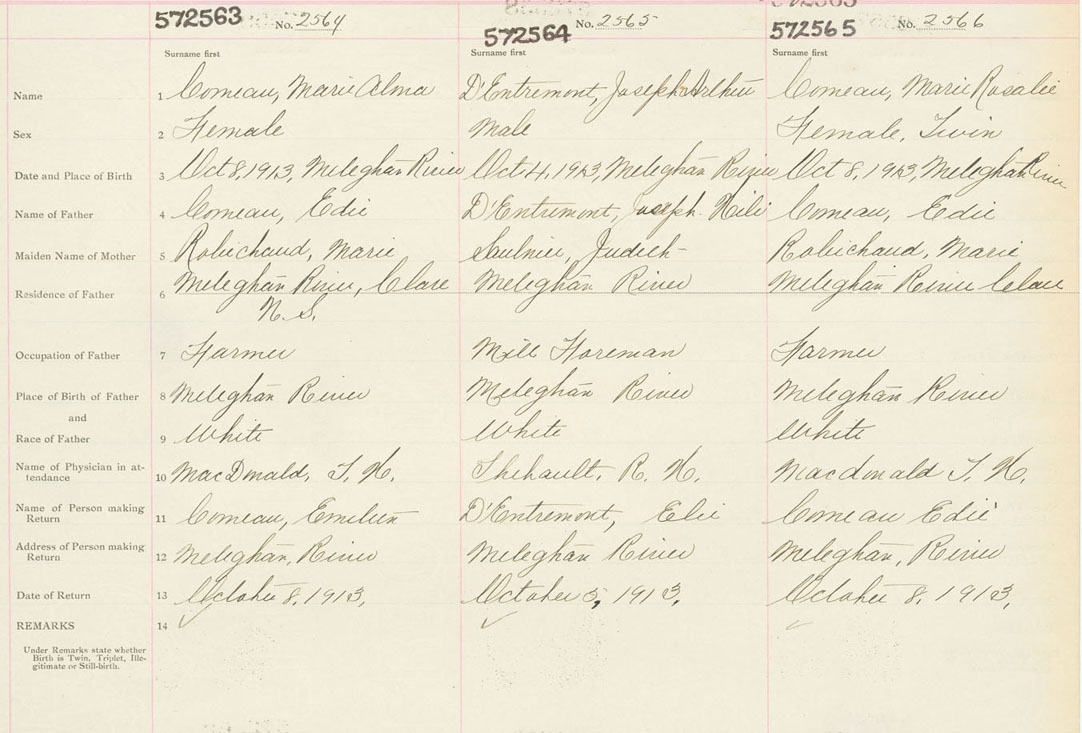 572563 No. 2564 572564 No. 2565 572565 No. 2566
Surname first Surname first Surname first
Name 1 Comeau, Marie Alma D'Entremont, Joseph Arthur Comeau, Marie Rosalie
Sex 2 Female Male Female, Twin
Date and Place of Birth 3 Oct 8, 1913, Meteghan River Oct 4, 1913, Meteghan River Oct 8, 1913, Meteghan River
Name of Father 4 Comeau, Edie D'Entremont, Joseph Comeau, Edie
Maiden Name of Mother 5 Robichaud, Marie Saulnier, Judith Robichaud, Marie
Residence of Father 6 Meteghan River, Clare Meteghan River Meteghan River Clare
N. S.
Occupation of Father 7 Farmer Mill Foreman Farmer
Place of Birth of Father 8 Meteghan River Meteghan River Meteghan River
and
Race of Father 9 White White White
Name of Physician in at-
tendance 10 MacDonald, T. H. Thibault, R. H. Macdonald T. H.
Name of Person making
Return 11 Comeau, D'Entremont, Elie Comeau Edie
Address of Person making
Return 12 Meteghan, River Meteghan River Meteghan, River
Date of Return 13 October 8, 1913, October 5, 1913, October 8, 1913,
REMARKS 14
Under Remarks state whether
Birth is Twin, Triplet, Ille-
gitimate or Still-birth.